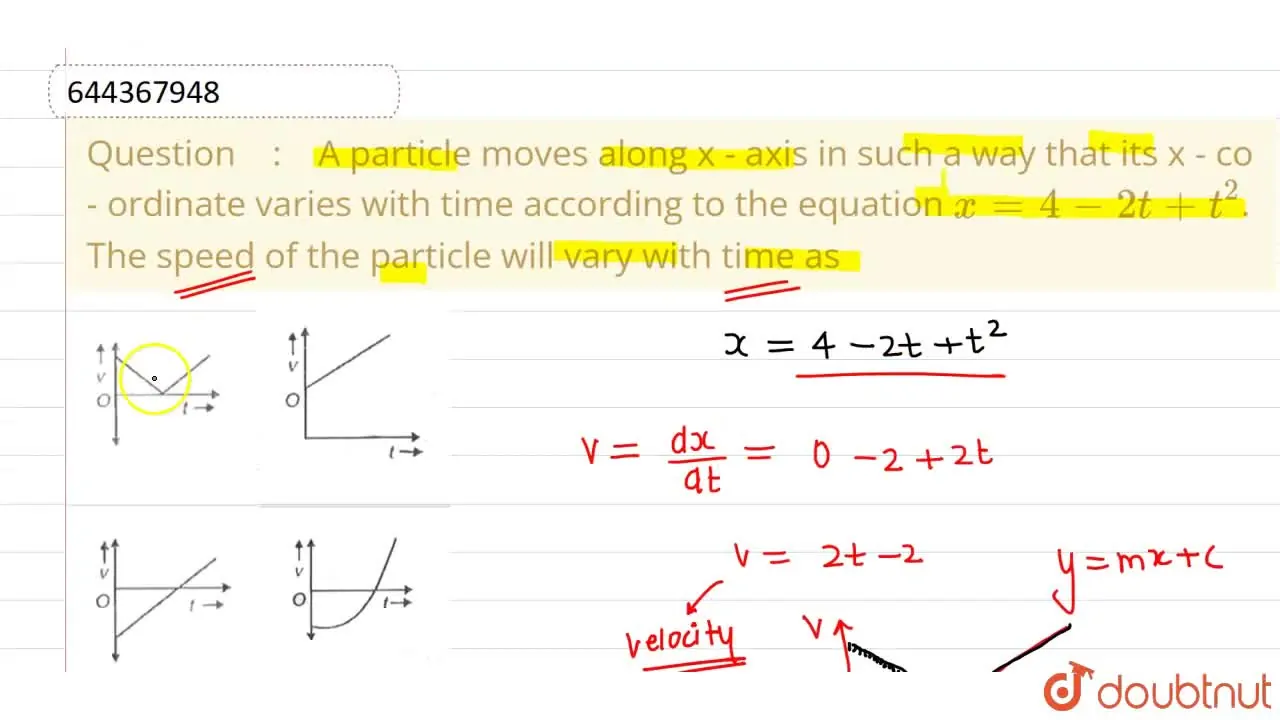 644367948
Question : A particle moves along x - axis in such a way that its x - co
- ordinate varies with time according to the equation x = 4 − 2t + t².
The speed of the particle will vary with time as
x = 4 − 2t + t²
v
O
t →
v
O
t →
v = dx/dt = 0 − 2 + 2t
v = 2t − 2
y = mx + c
velocity
v
v
O
t →
v
O
t →
doubtnut